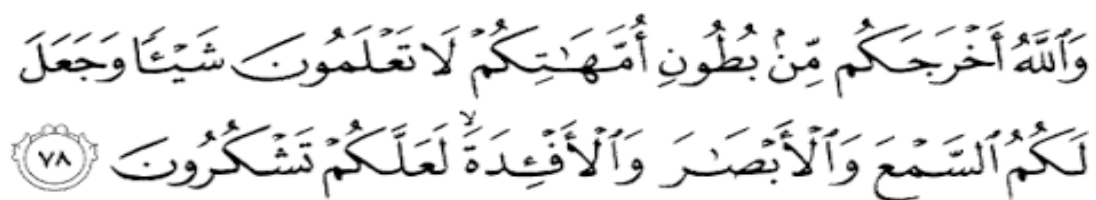 وَٱللَّهُ أَخْرَجَكُم مِّنۢ بُطُونِ أُمَّهَٰتِكُمْ لَا تَعْلَمُونَ شَيْـًٔا وَجَعَلَ
لَكُمُ ٱلسَّمْعَ وَٱلْأَبْصَٰرَ وَٱلْأَفْـِٔدَةَ ۙ لَعَلَّكُمْ تَشْكُرُونَ ٧٨